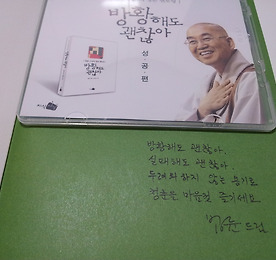 방황해도
괜찮아
성공편
방황해도
괜찮아
방황해도 괜찮아.
실패해도 괜찮아.
두려워하지 않는 용기로
청춘을 마음껏 즐기세요
법륜 드림